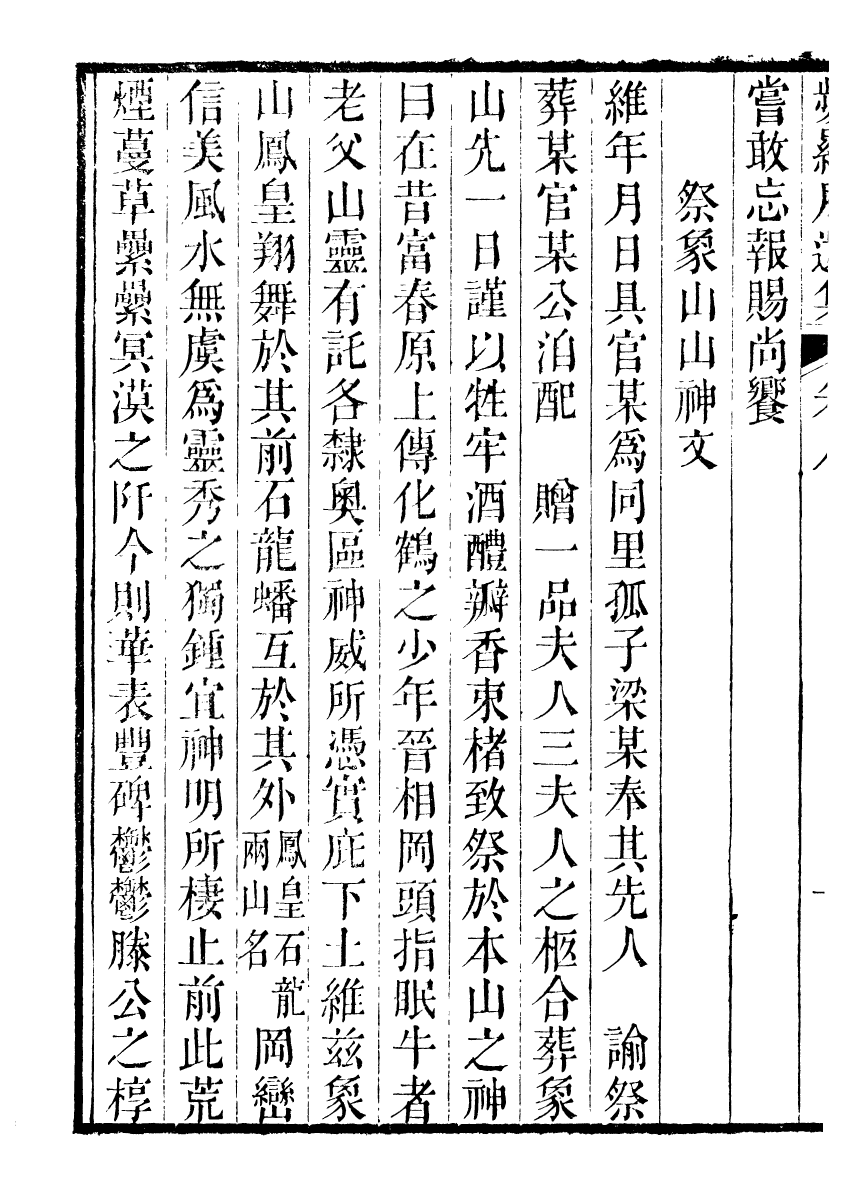 嘗敢忘報賜尚饗
祭象山山神文
維年月日具官某爲同里孤子梁某奉其先人　諭祭
葬某官某公洎配　贈一品夫人三夫人之柩合葬象
山先一日謹以牲牢酒醴瓣香束楮致祭於本山之神
曰在昔富春原上傳化鶴之少年晉相岡頭指眠牛者
老父山靈有託各隸奧區神威所憑實庇下土維兹象
山鳳皇翔舞於其前石龍蟠互於其外鳳皇石龍兩山名岡巒
信美風水無虞爲靈秀之獨鍾宜神明所棲止前此荒
煙蔓草纍纍冥漠之阡今則華表豐碑鬱鬱滕公之椁